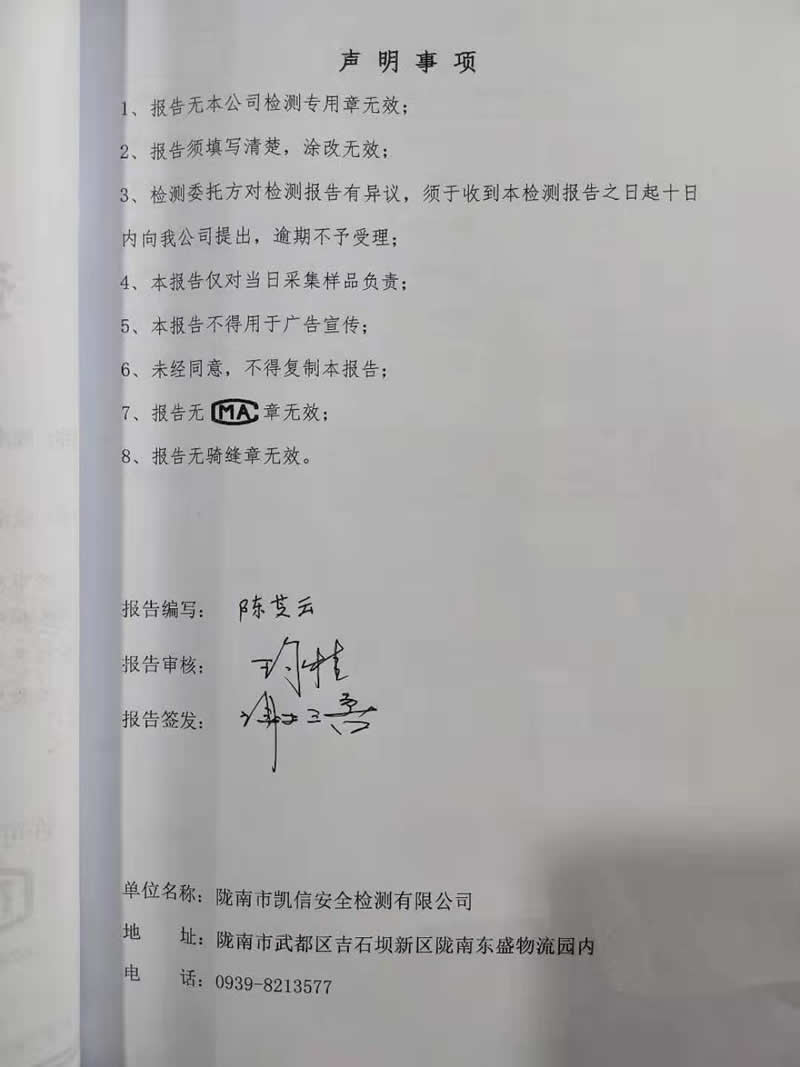 声明事项
1、报告无本公司检测专用章无效；
2、报告须填写清楚，涂改无效；
3、检测委托方对检测报告有异议，须于收到本检测报告之日起十日
内向我公司提出，逾期不予受理；
4、本报告仅对当日采集样品负责；
5、本报告不得用于广告宣传；
6、未经同意，不得复制本报告；
7、报告无 MA 章无效；
8、报告无骑缝章无效。
报告编写：陈芸云
报告审核：
报告签发：
单位名称：陇南市凯信安全检测有限公司
地　　址：陇南市武都区吉石坝新区陇南东盛物流园内
电　　话：0939-8213577